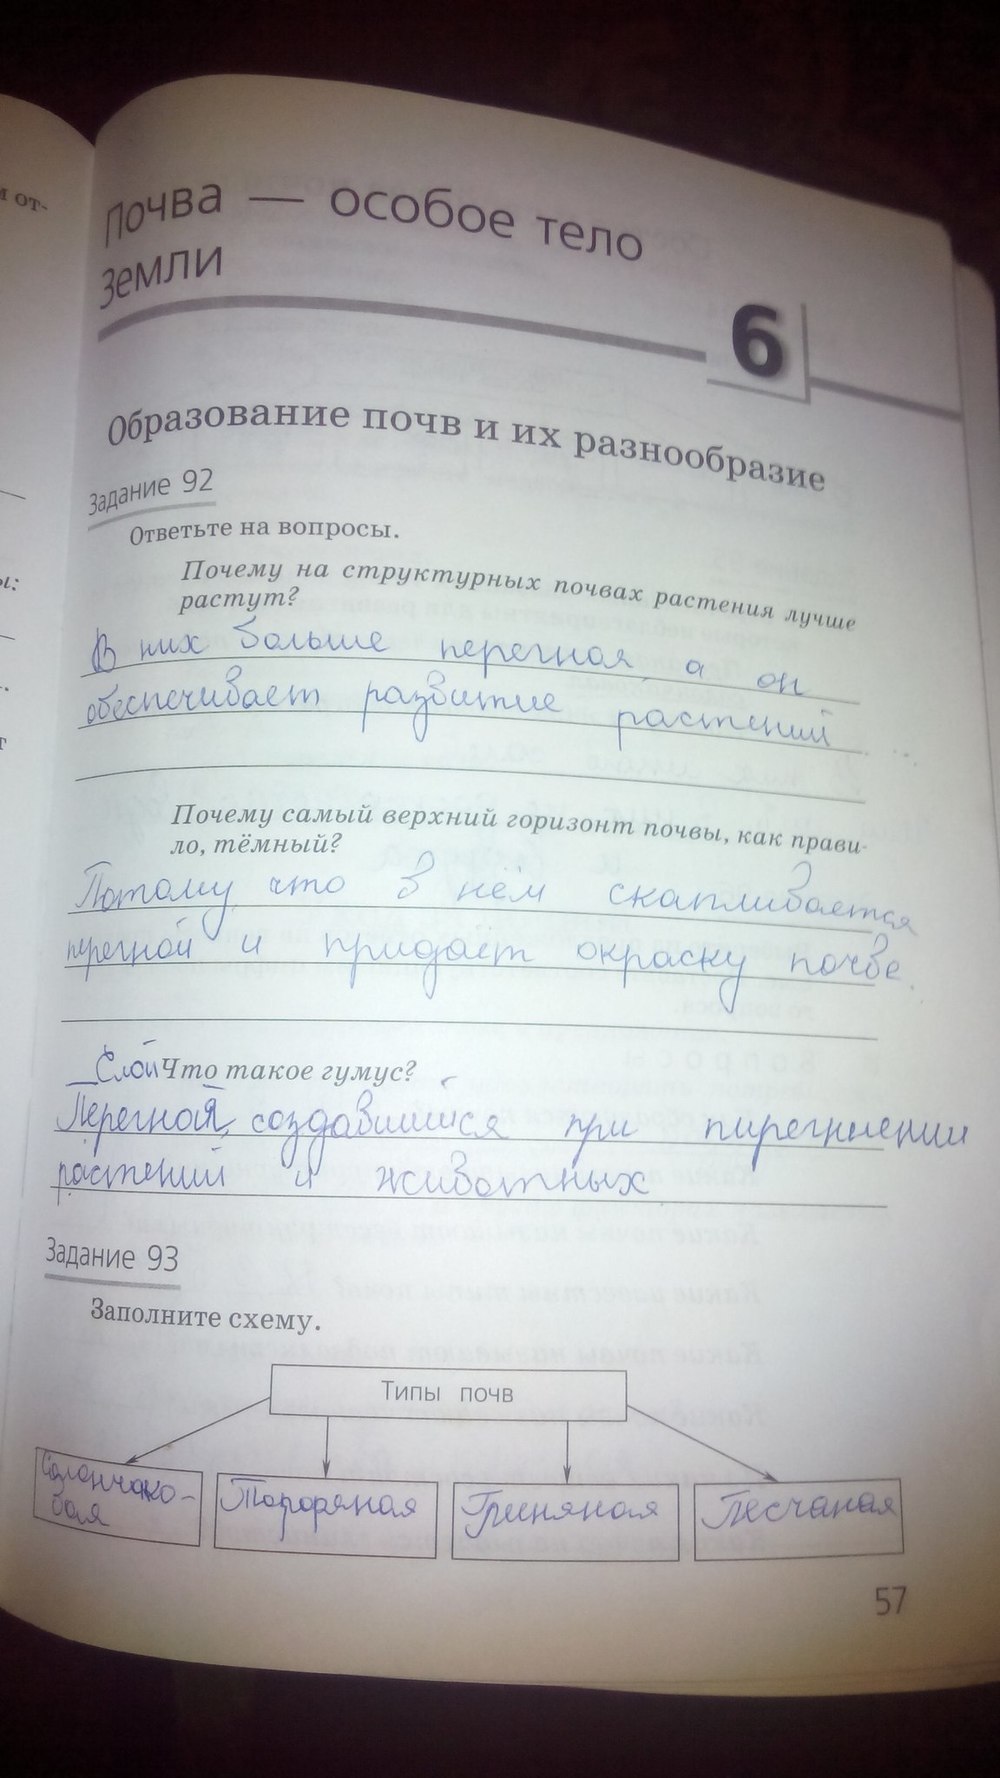 м от-
Почва — особое тело
Земли
6
Образование почв и их разнообразие
Задание 92
Ответьте на вопросы.
Почему на структурных почвах растения лучше
растут?
В них больше перегноя, а он
обеспечивает развитие растений
Почему самый верхний горизонт почвы, как прави-
ло, тёмный?
Потому что в нём скапливается
перегной и придаёт окраску почве.
Слой Что такое гумус?
Перегной, создавшийся при пирегниении
растений и животных
Задание 93
Заполните схему.
Типы почв
Солончако-
вая
Торфяная
Глиняная
Песчаная
57